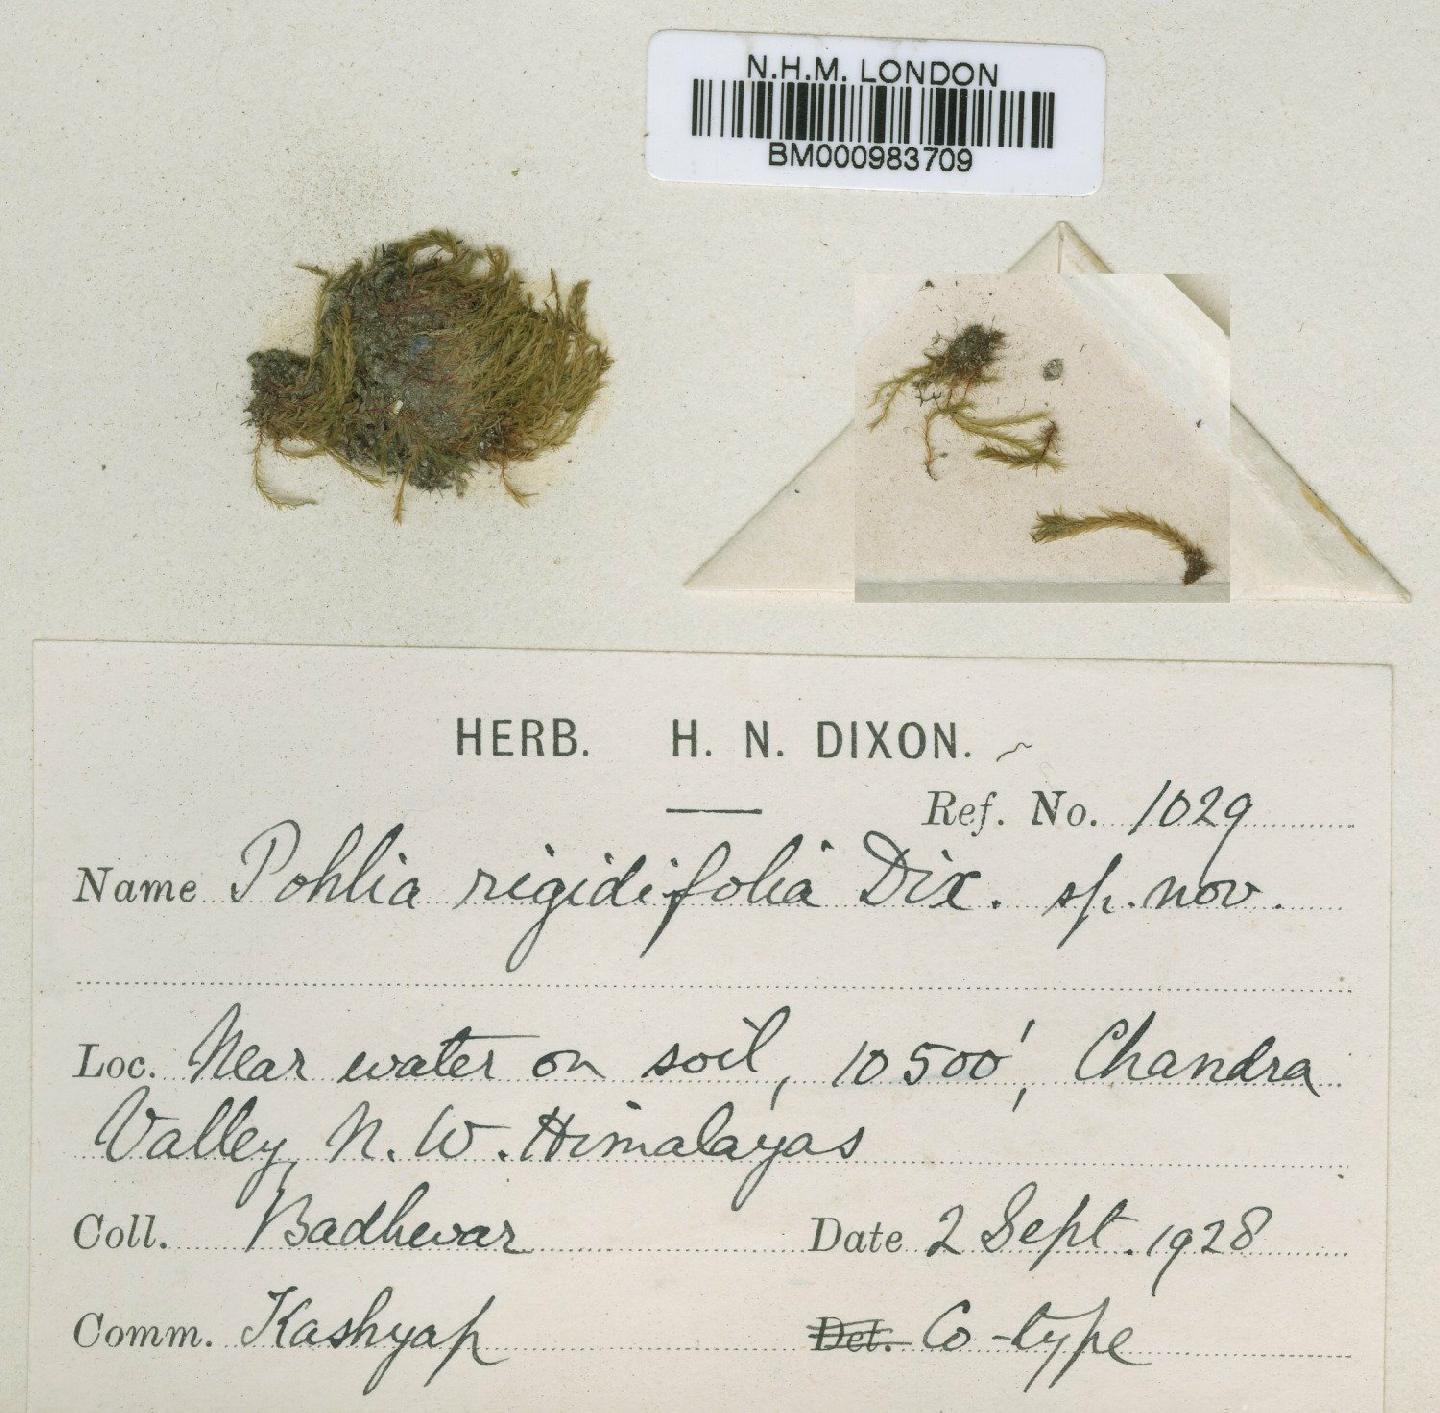 N.H.M. LONDON
BM000983709
HERB. H. N. DIXON.
Ref. No. 1029
Name Pohlia rigidifolia Dix. sp. nov.
Loc. Near water on soil, 10500', Chandra
Valley, N. W. Himalayas
Coll. Badhwar Date 2 Sept. 1928
Comm. Kashyap Det. Co-type